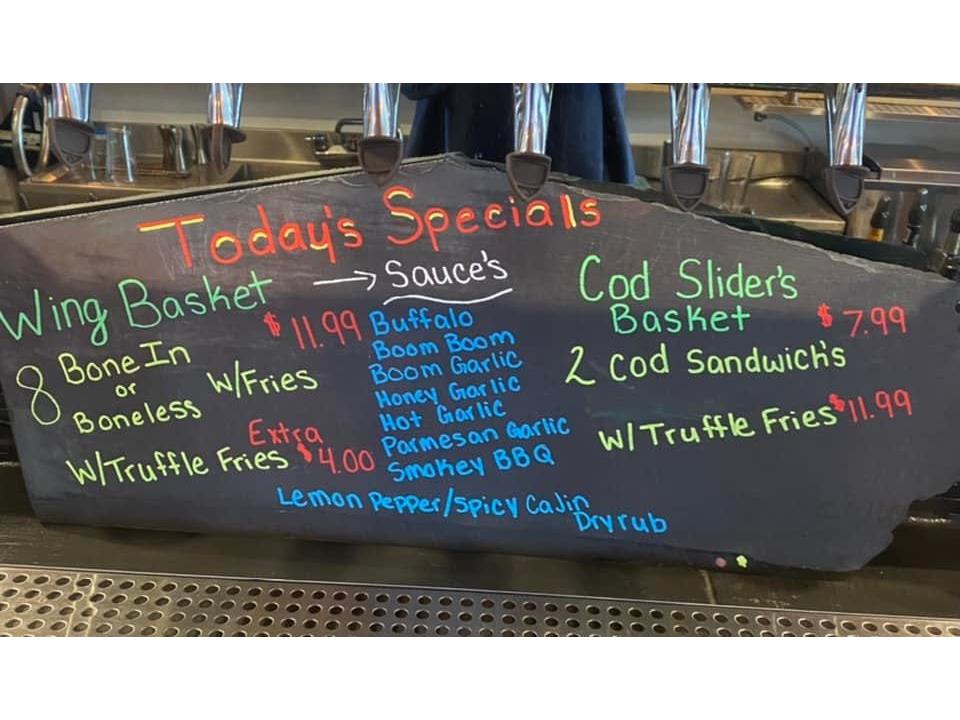 Today's Specials
Wing Basket → Sauce's
$11.99
8 Bone In
or
Boneless
W/Fries
Extra
W/Truffle Fries $4.00
Buffalo
Boom Boom
Boom Garlic
Honey Garlic
Hot Garlic
Parmesan Garlic
Smokey BBQ
Lemon Pepper/Spicy Cajin
Dry rub
Cod Slider's
Basket $7.99
2 Cod Sandwich's
W/Truffle Fries $11.99